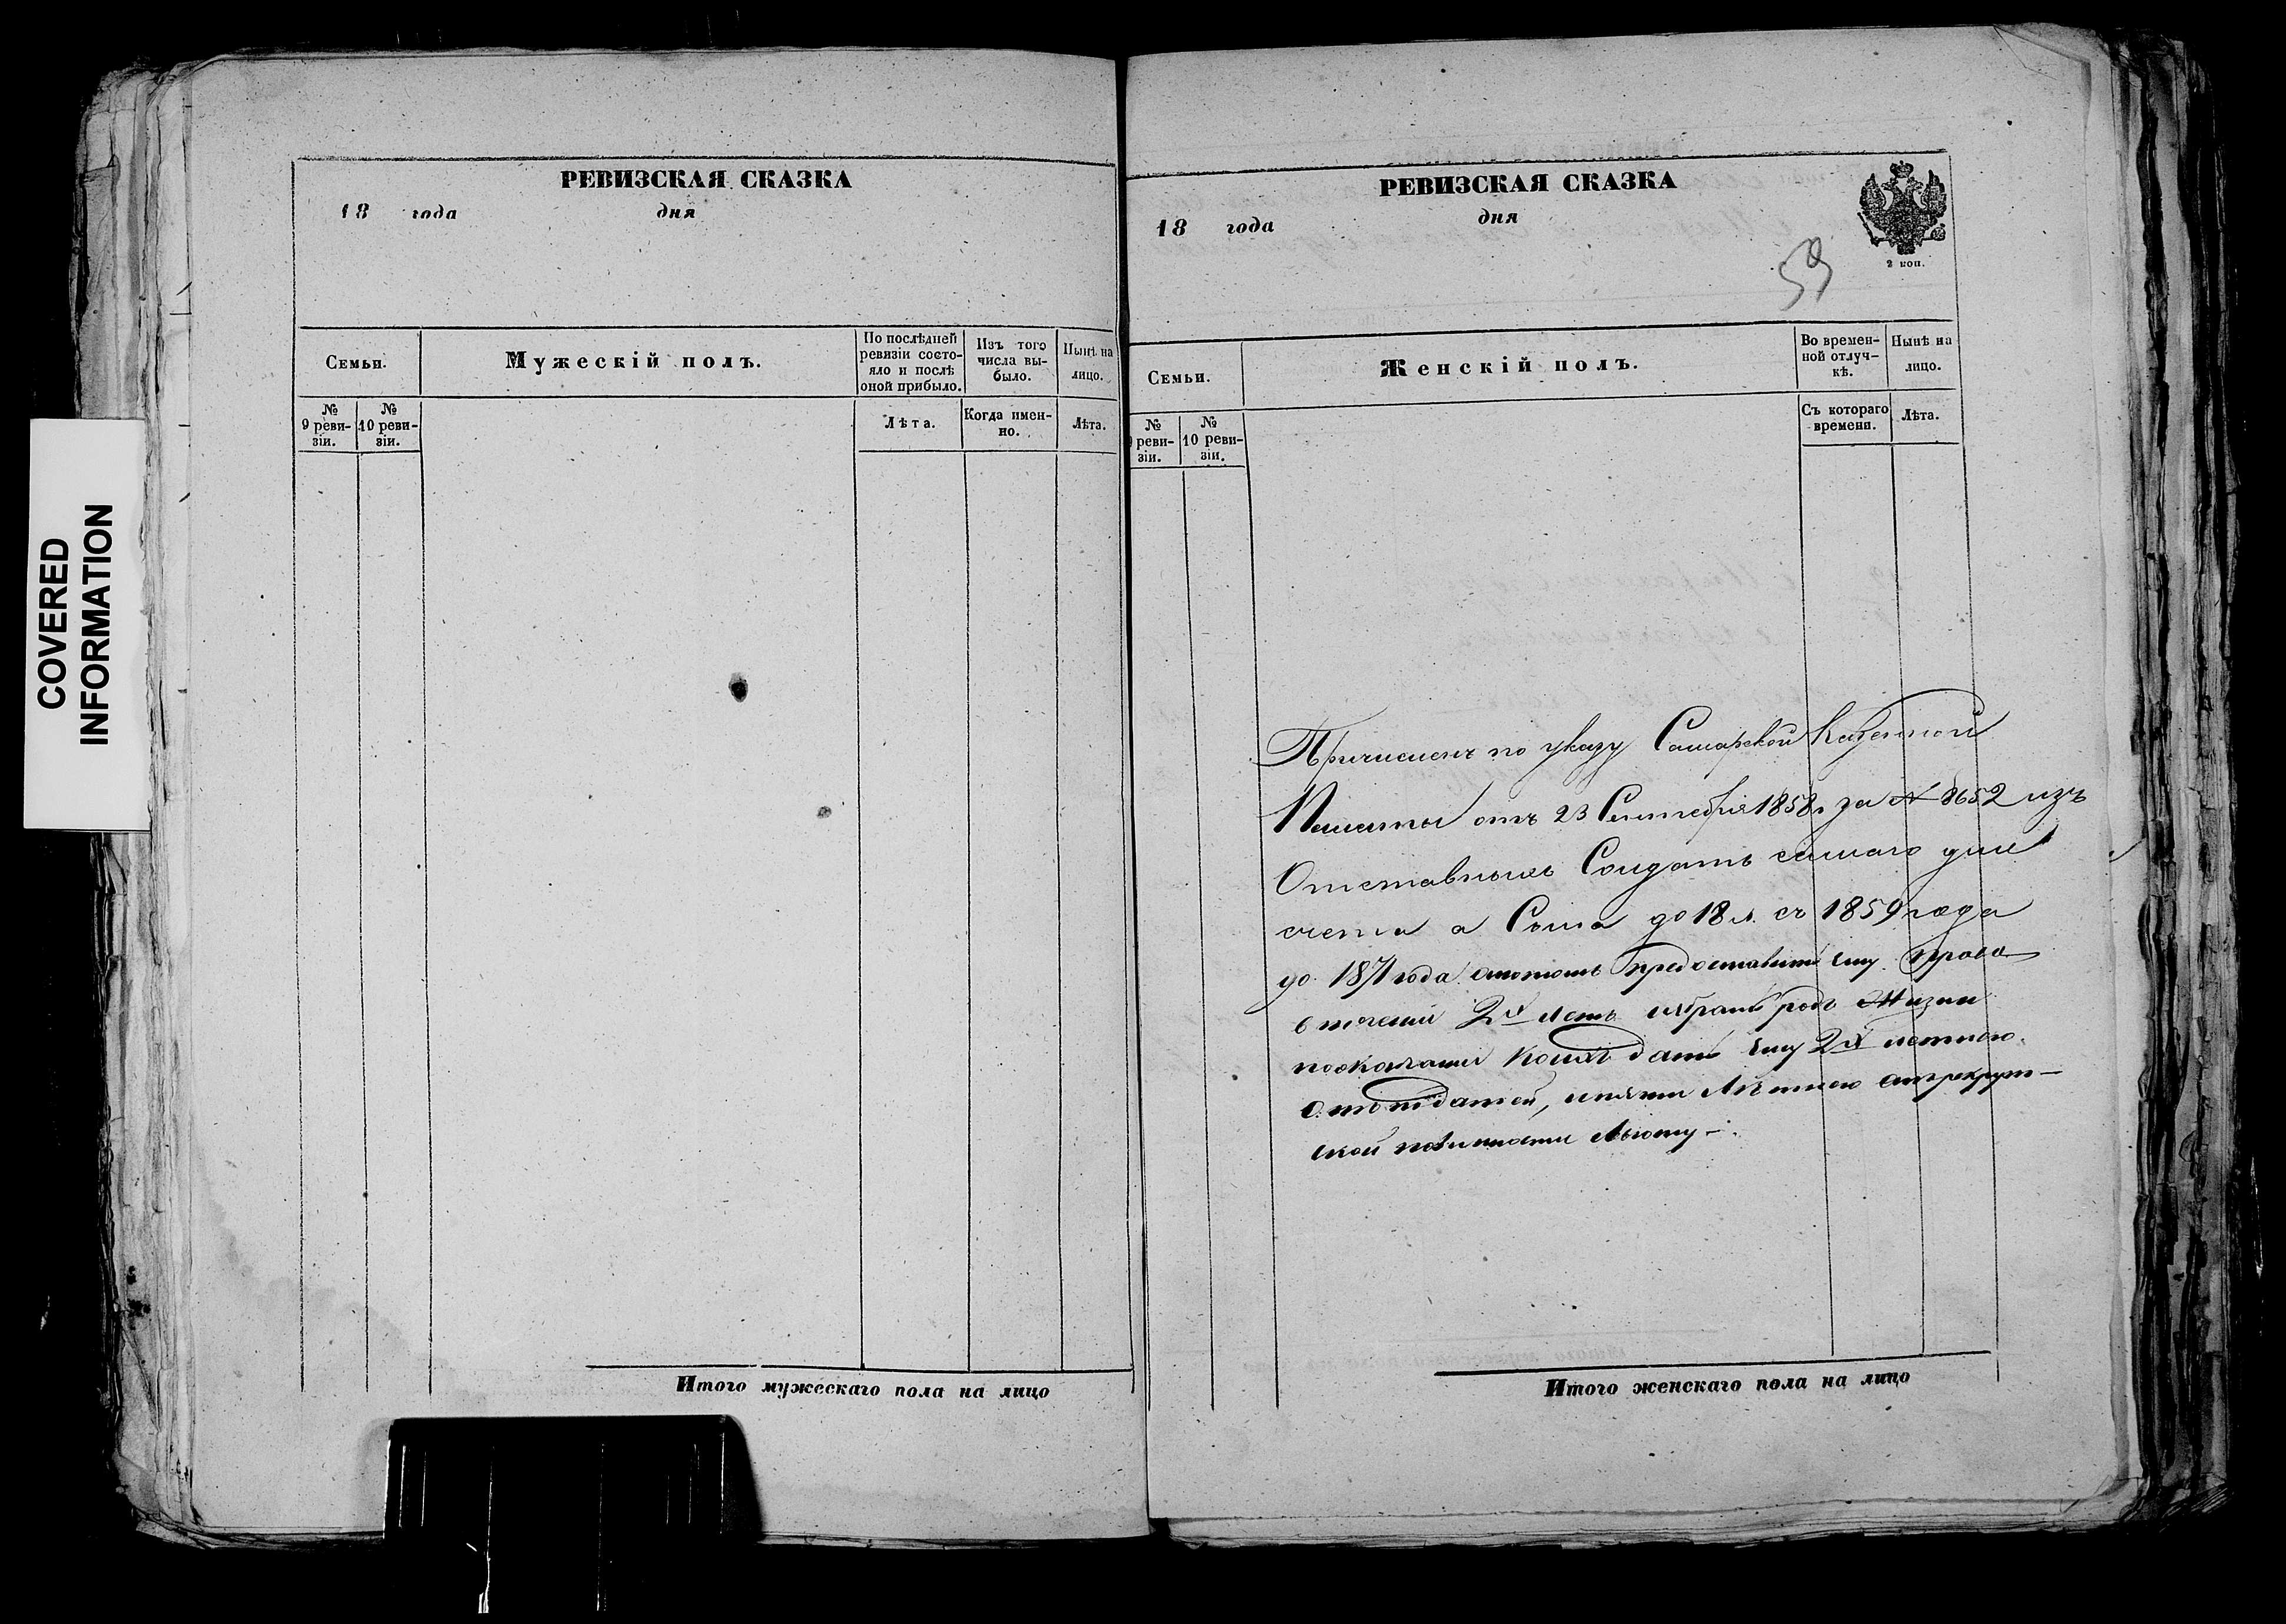 COVERED
INFORMATION
РЕВИЗСКАЯ СКАЗКА
18 года дня
Семьи.
Мужескій полъ.
По послѣдней ревизіи состояло и послѣ оной прибыло.
Изъ того числа выбыло.
Нынѣ на лицо.
№ 9 ревизіи.
№ 10 ревизіи.
Лѣта.
Когда именно.
Лѣта.
Итого мужескаго пола на лицо
РЕВИЗСКАЯ СКАЗКА
18 года дня
2 коп.
59
Семьи.
Женскій полъ.
Во временной отлучкѣ.
Нынѣ на лицо.
№ 9 ревизіи.
№ 10 ревизіи.
Съ котораго времени.
Лѣта.
Причисленъ по указу Самарской Казенной
Палаты отъ 23 Сентября 1858 г за № 8652 изъ
Отставныхъ Солдатъ самаго для
счета а Сына до 18 л. съ 1859 года
до 1871 года апотомъ предоставить ему право
втечении 2х летъ избрать родъ жизни
поокончании коихъ дать ему 2х летнюю
отъ податей, и летнюю отрекрут-
ской повинности льготу
Итого женскаго пола на лицо